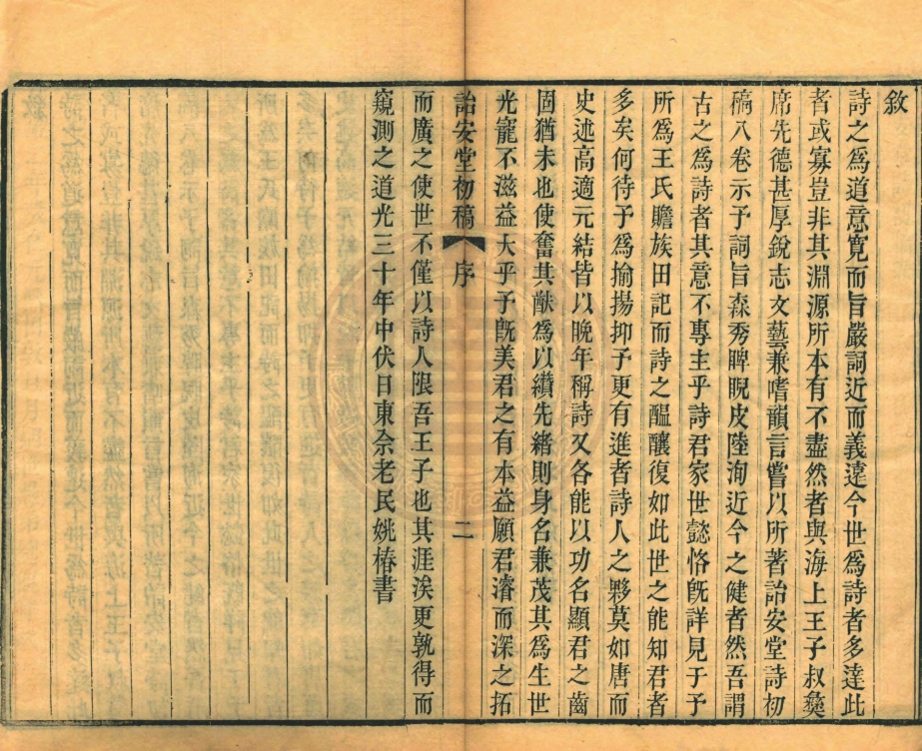 敘
詩之爲道意寛而旨嚴詞近而義遠今世爲詩者多達此
者或寡豈非其淵源所本有不盡然者與海上王子叔彝
席先德甚厚銳志文藝兼嗜韻言嘗以所著詒安堂詩初
稿八卷示予詞旨森秀睥睨皮陸洵近今之健者然吾謂
古之爲詩者其意不專主乎詩君家世懿恪旣詳見于予
所爲王氏贍族田記而詩之醞釀復如此世之能知君者
多矣何待予爲揄揚抑予更有進者詩人之夥莫如唐而
史述高適元結皆以晚年稱詩又各能以功名顯君之齒
固猶未也使奮其猷爲以纘先緒則身名兼茂其爲生世
光寵不滋益大乎予旣美君之有本益願君濬而深之拓
詒安堂初稿 序 二
而廣之使世不僅以詩人限吾王子也其涯涘更孰得而
窺測之道光三十年中伏日東佘老民姚椿書